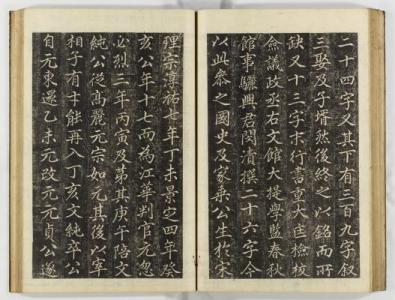 二十四字又其下有三百九字叙
三娶及子壻然後終之以銘而所
缺又十三字末行書重大匡檢校
僉議政丞右文館大提學監春秋
館事驪興君閔漬撰二十六字今
以此叅之國史及家乘公生於宋
理宗淳祐七年丁未景定四年癸
亥公年十七而為江華判官元忽
必烈三年丙寅及第其庚午陪文
純公從高麗元宗如元其後以宰
相子有才能再入丁亥文純卒公
自元東還乙未元改元元貞公遂